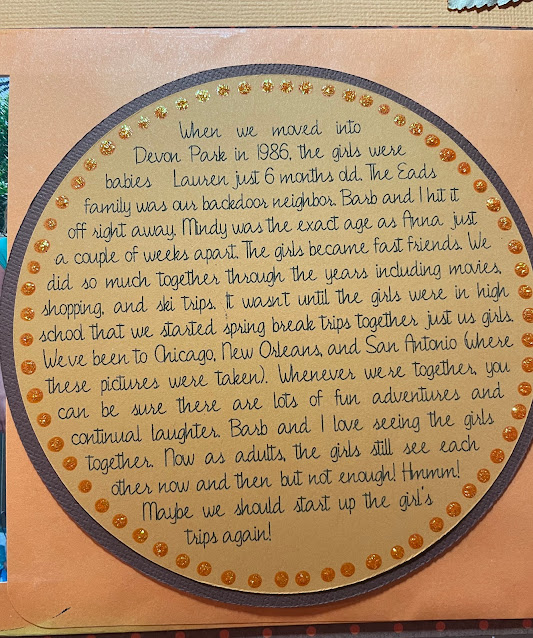 When we moved into
Devon Park in 1986, the girls were
babies Lauren just 6 months old. The Eads
family was our backdoor neighbor. Barb and I hit it
off right away. Mindy was the exact age as Anna just
a couple of weeks apart. The girls became fast friends. We
did so much together through the years including movies,
shopping, and ski trips. It wasn't until the girls were in high
school that we started spring break trips together just us girls.
We've been to Chicago, New Orleans, and San Antonio (where
these pictures were taken). Whenever we're together, you
can be sure there are lots of fun adventures and
continual laughter. Barb and I love seeing the girls
together. Now as adults, the girls still see each
other now and then but not enough! Hmmm!
Maybe we should start up the girl's
trips again!